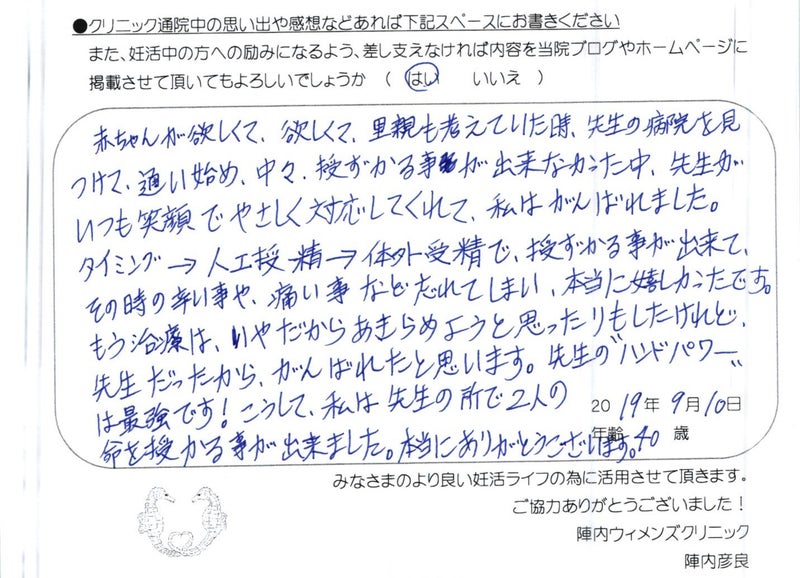 ●クリニック通院中の思い出や感想などあれば下記スペースにお書きください
また、妊活中の方への励みになるよう、差し支えなければ内容を当院ブログやホームページに
掲載させて頂いてもよろしいでしょうか （ はい いいえ ）
赤ちゃんが欲しくて、欲しくて、里親も考えていた時、先生の病院を見
つけて、通い始め、中々、授ずかる事が出来なかった中、先生が
いつも笑顔でやさしく対応してくれて、私はがんばれました。
タイミング→人工授精→体外受精で、授ずかる事が出来て、
その時の辛い事や、痛い事など忘れてしまい、本当に嬉しかったです。
もう治療は、いやだからあきらめようと思ったりもしたけれど、
先生だったから、がんばれたと思います。先生の"ハンドパワー"
は最強です！こうして、私は先生の所で2人の
2019年9月10日
命を授かる事が出来ました。本当にありがとうございます。
年齢 40 歳
みなさまのより良い妊活ライフの為に活用させて頂きます。
ご協力ありがとうございました！
陣内ウィメンズクリニック
陣内彦良